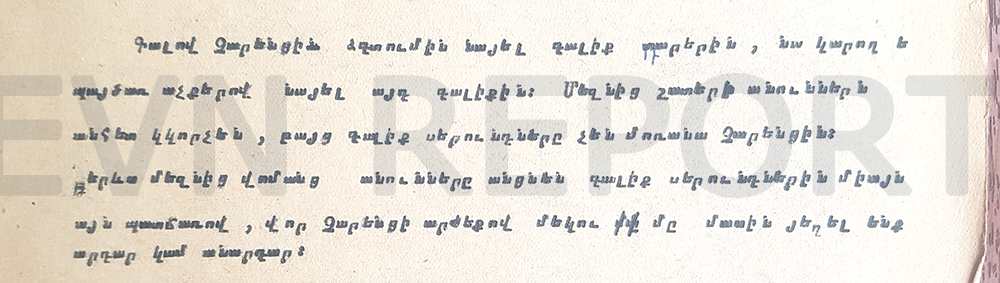 Գալով Չարենցին ձգտումին նայել գալիք դարերին, նա կարող է
պայծառ աչքերով նայել այդ գալիքին: Մեզնից շատերի անունններն
անհետ կկորչեն, բայց գալիք սերունդները չեն մոռանա Չարենցին:
Երևա մեզնից վոմանց անունները անցնեն գալիք սերունդներին միայն
այն պատճառով, վոր Չարենցի արժեքով մեկու մը մասին յեղել ենք
արդար կամ անարդար:
EVN REPORT